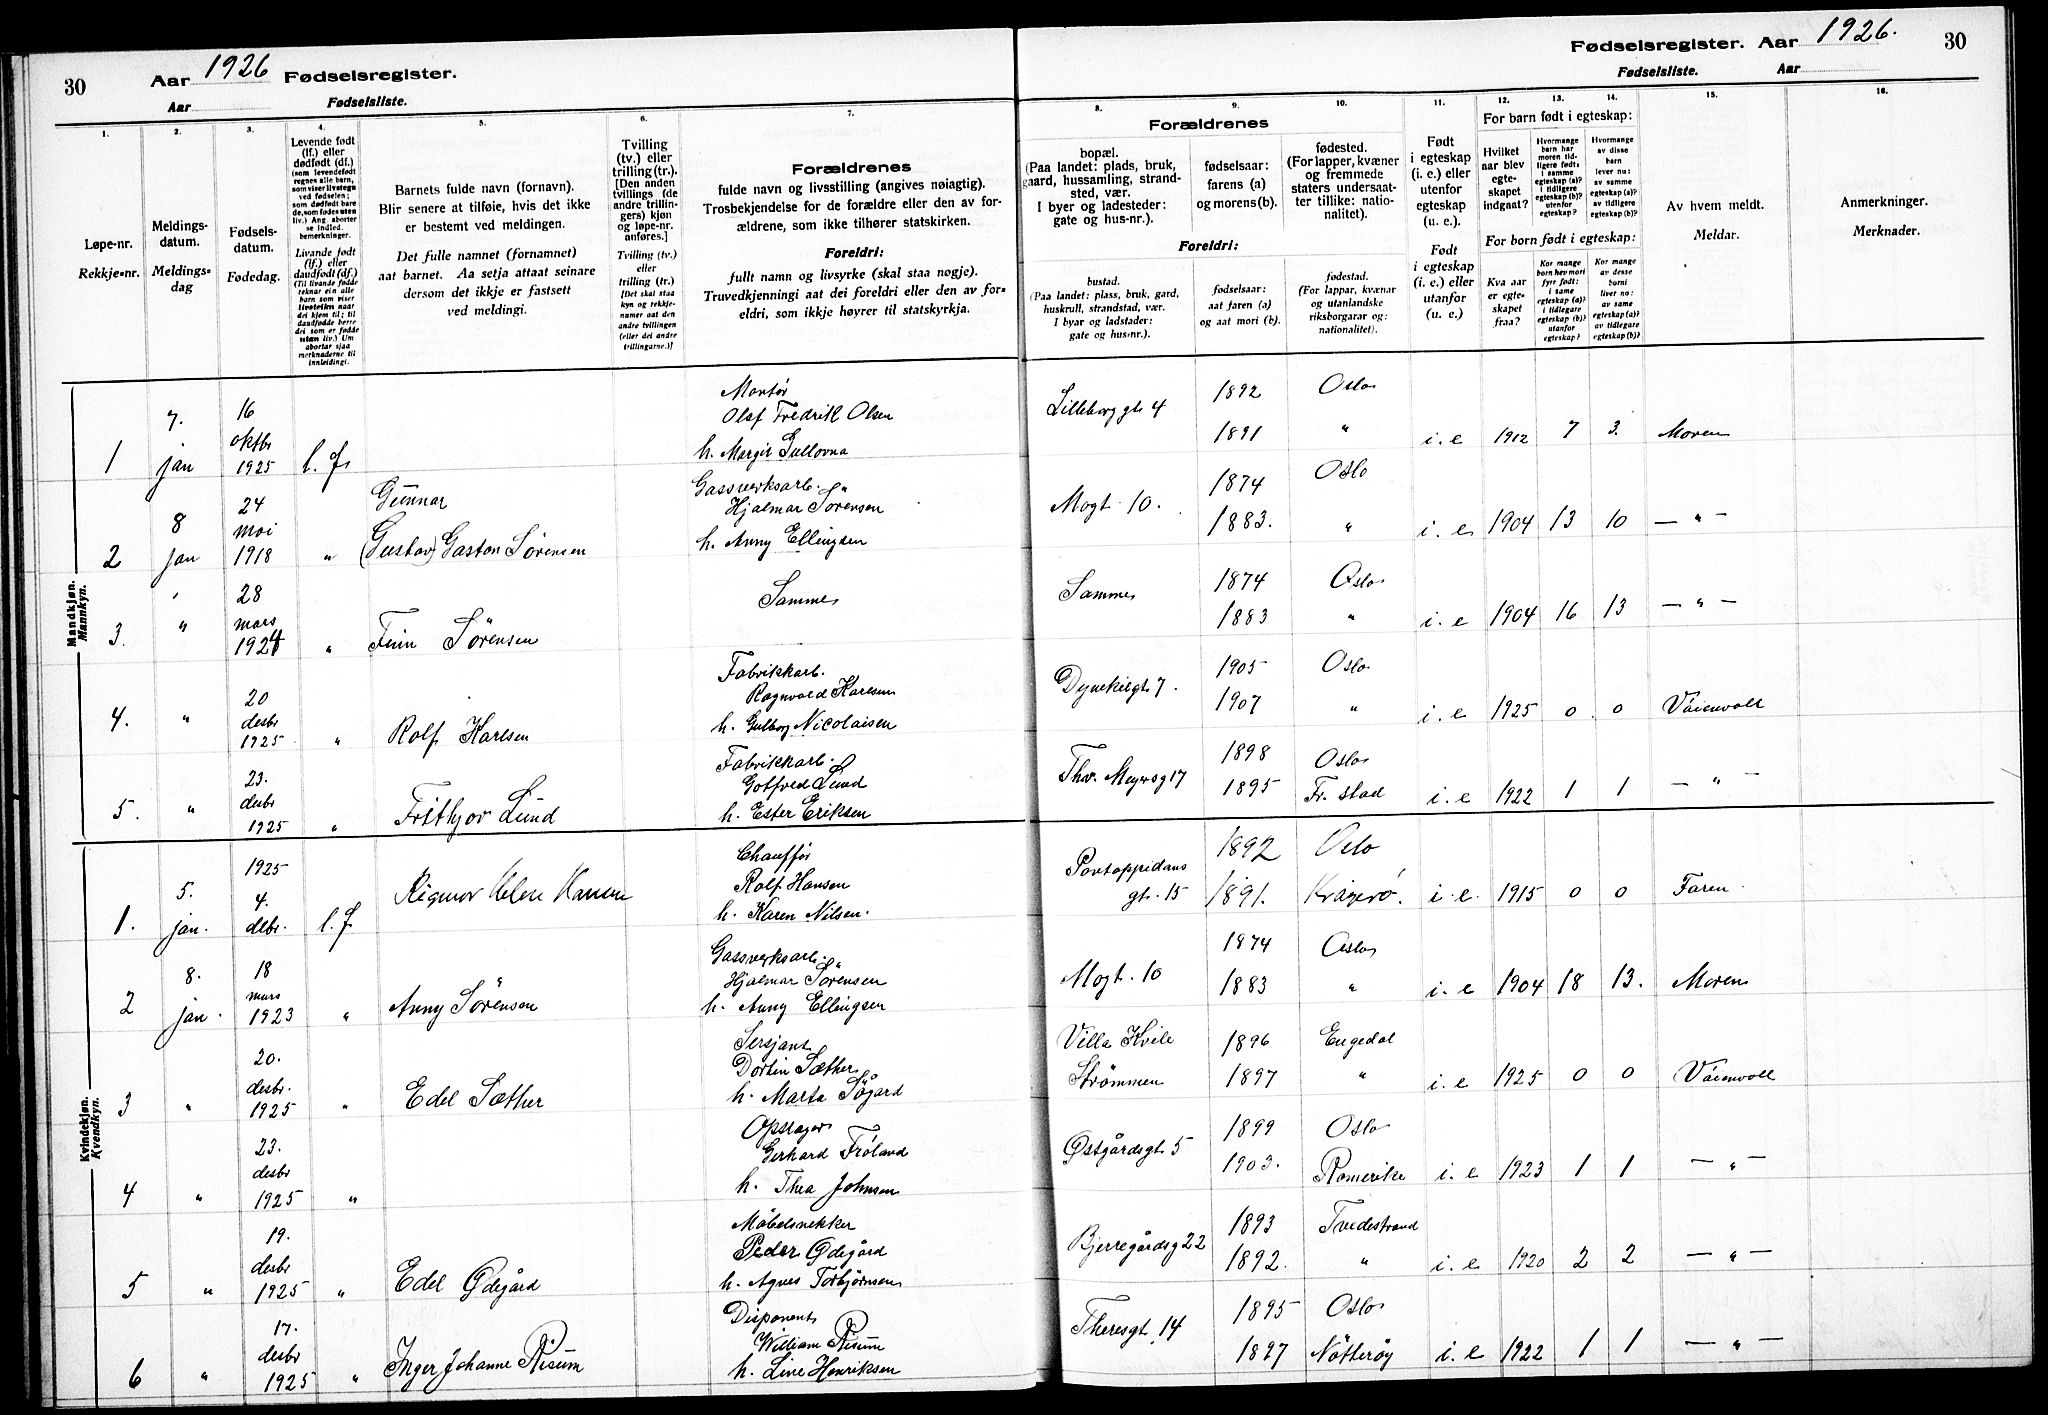 30 Aar 1926 Fødselsregister.
Aar Fødselsliste.
Fødselsregister. Aar 1926. 30
Fødselsliste. Aar
1. 2. 3. 4. 5. 6. 7. 8. 9. 10. 11. 12. 13. 14. 15. 16.
Løpe-nr.
Rekkje-nr.
Meldings-
datum.
Meldings-
dag
Fødsels-
datum.
Fødedag.
Levende født
(lf.) eller
dødfødt (df.)
(som levendefødt
regnes alle barn,
som viser livstegn
ved fødselen;
som dødfødt bare
de, som fødes uten
liv.) Ang. aborter
se Indled.
bemerkninger.
Livande født
(lf.) eller
daudfødt (df.)
(Til livande fødde
reknar ein alle
born som viser
livsteikn naar
dei kjem til; til
daudfødde berre
dei som er fødde
utan liv.) Um
abortar sjaa
merknaderne til
innleidingi.
Barnets fulde navn (fornavn).
Blir senere at tilføie, hvis det ikke
er bestemt ved meldingen.
Det fulle namnet (fornamnet)
aat barnet. Aa setja attaat seinare
dersom det ikkje er fastsett
ved meldingi.
Tvilling
(tv.) eller
trilling (tr.).
[Den anden
tvillings (de
andre trillin-
gers) kjøn
og løpe-nr.
anføres.]
Tvilling (tv.)
eller
trilling (tr.)
[Det skal staa
kyn og rekkje-
numer aat den
andre tvillingen
(eller dei andre
trillingarne.)]
Forældrenes
fulde navn og livsstilling (angives nøiagtig).
Trosbekjendelse for de forældre eller den av for-
ældrene, som ikke tilhører statskirken.
Foreldri:
fullt namn og livsyrke (skal staa nøgje).
Truvedkjenningi aat dei foreldri eller den av for-
eldri, som ikkje høyrer til statskyrkja.
Forældrenes
bopæl.
(Paa landet: plads, bruk,
gaard, hussamling, strand-
sted, vær.
I byer og ladesteder:
gate og hus-nr.).
fødselsaar:
farens (a)
og morens (b).
fødested.
(For lapper, kvæner
og fremmede
staters undersaat-
ter tillike: natio-
nalitet).
Foreldri:
bustad.
(Paa landet: plass, bruk, gard,
huskrull, strandstad, vær.
I byar og ladstader:
gate og hus-nr.).
fødselsaar:
aat faren (a)
og aat mori (b).
fødestad.
(For lappar, kvænar
og utanlandske
riksborgarar og:
nationalitet).
Født
i egteskap
(i. e.) eller
utenfor
egteskap
(u. e.).
Født
i egteskap
(i. e.) eller
utanfor
(u. e.)
For barn født i egteskap:
Hvilket
aar blev
egte-
skapet
indgaat?
Hvormange
barn har
moren tid-
ligere født:
i samme
egteskap (a)?
i tidligere
egteskap (b)?
utenfor
egteskap?
Hvormange
av disse
barn
lever nu:
av samme
egteskap (a)?
av tidligere
egteskap (b)?
For born født i egteskap:
Kva aar
er egte-
skapet
fraa?
Kor mange
born hev mori
fyrr født:
i same
egteskap (a)?
i tidlegare
egteskap (b)?
utanfor
egteskap?
Kor mange
av desse
borni
liver no:
av same
egteskap (a)?
av tidlegare
egteskap (b)?
Av hvem meldt.
Meldar.
Anmerkninger.
Merknader.
Mandkjøn.
Mannkyn.
1 7. jan 16 oktbr 1925 l. f. Montør Olaf Fredrik Olsen h. Margit Lilleborg gt 4 1892 1891 Oslo " i. e 1912 7 3. Moren
2 8 jan 24 mai 1918 " Gunnar (Gustav) Gaston Sørensen Gassverksarb. Hjalmar Sørensen h. Anny Ellingsen Mogt. 10. 1874 1883. Oslo " i. e 1904 13 10 — " —
3. " 28 mars 1924 " Finn Sørensen Samme Samme 1874 1883 Oslo " i. e 1904 16 13 — " —
4. " 20 desbr 1925 " Rolf Karlsen Fabrikkarb. Ragnvald Karlsen h. Gulborg Nicolaisen Dynekilgt 7. 1905 1907 Oslo " i. e 1925 0 0 Våienvoll
5. " 23. desbr 1925 " Frithjov Lund Fabrikkarb. Gotfred Lund h. Ester Eriksen Thv. Meyersg 17 1898 1895 Oslo Fr. stad i. e 1922 1 1 — " —
Kvindekjøn.
Kvendkyn.
1. 5. jan. 1925 4. debr. l. f Rigmor Helene Hansen Chauffør Rolf Hansen h. Karen Nilsen. Pontoppidans gt. 15 1892 1891. Oslo Kragerø. i. e. 1915 0 0 Faren.
2 8. jan. 18 mars 1923 " Anny Sørensen Gassverksarb. Hjalmar Sørensen h. Anny Ellingsen Mogt. 10 1874 1883 Oslo " i. e 1904 18 13. Moren
3 " 20. desbr. 1925 " Edel Sæther Sersjant Sæther h. Marta Søgård Villa Kvile Strømmen 1896 1897 Engedal " i. e 1925 0 0 Våienvoll
4 " 23. desbr 1925 " Opstager Gerhard Frøland h. Thea Johnsen Østgårdsgt 5 1899 1903. Oslo Romerike i. e 1923 1 1 — " —
5 " 19. desbr 1925 " Edel Ødegård Møbelsnekker Peder Ødegård h. Agnes Torbjørnsen Bjerregårdsg 22 1893 1892. Tvedestrand " i. e 1920 2 2 — " —
6 " 17. desbr 1925 " Inger Johanne Risum Disponent William Risum h. Line Henriksen Theresgt. 14 1895 1897 Oslo Nøtterøy i. e 1922 1 1 — " —